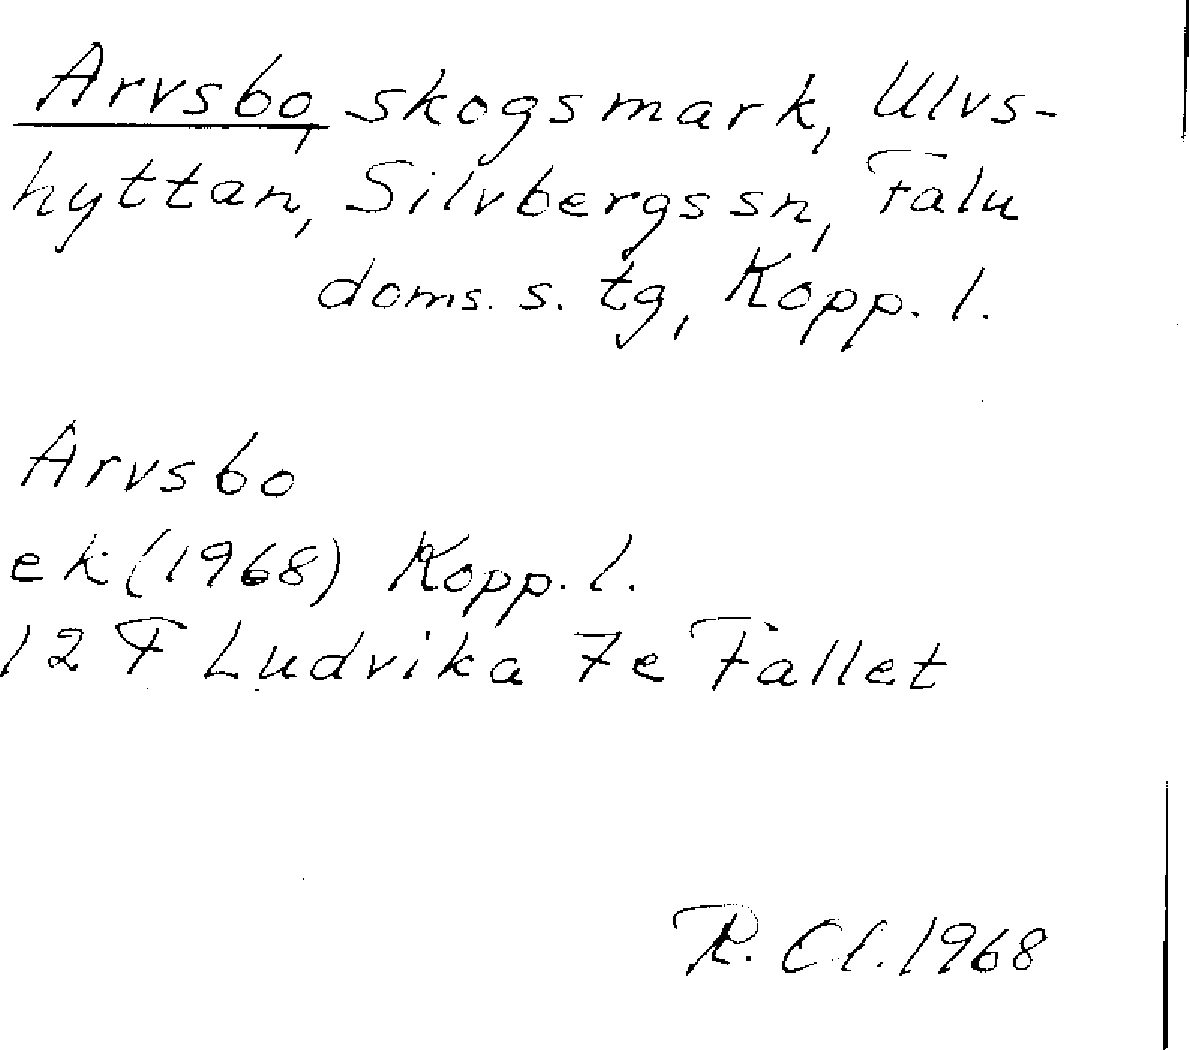 Arvsbo, skogsmark, Ulvs-
hyttan, Silvbergs sn, Falu
doms. s. tg, Kopp. l.
Arvsbo
ek (1968) Kopp. l.
12 F Ludvika 7e Fallet
R. Cl. 1968